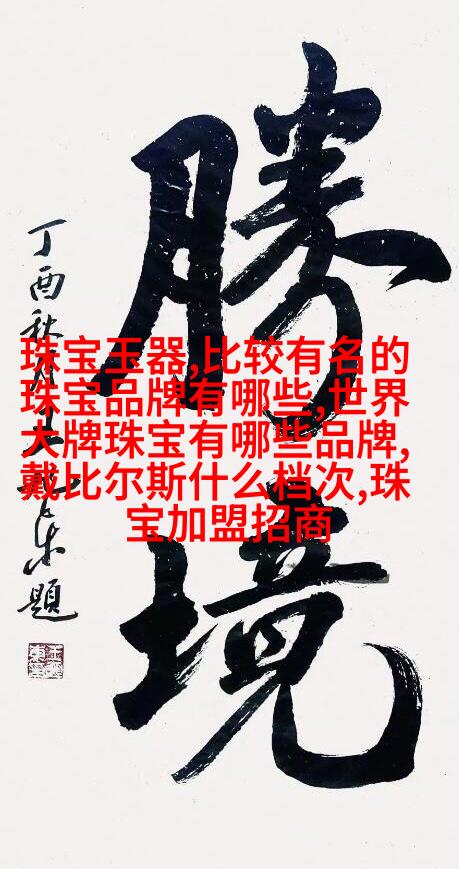 勝境
丁酉秋月
题
珠宝玉器,比较有名的
珠宝品牌有哪些,世界
大牌珠宝有哪些品牌,
戴比尔斯什么档次,珠
宝加盟招商